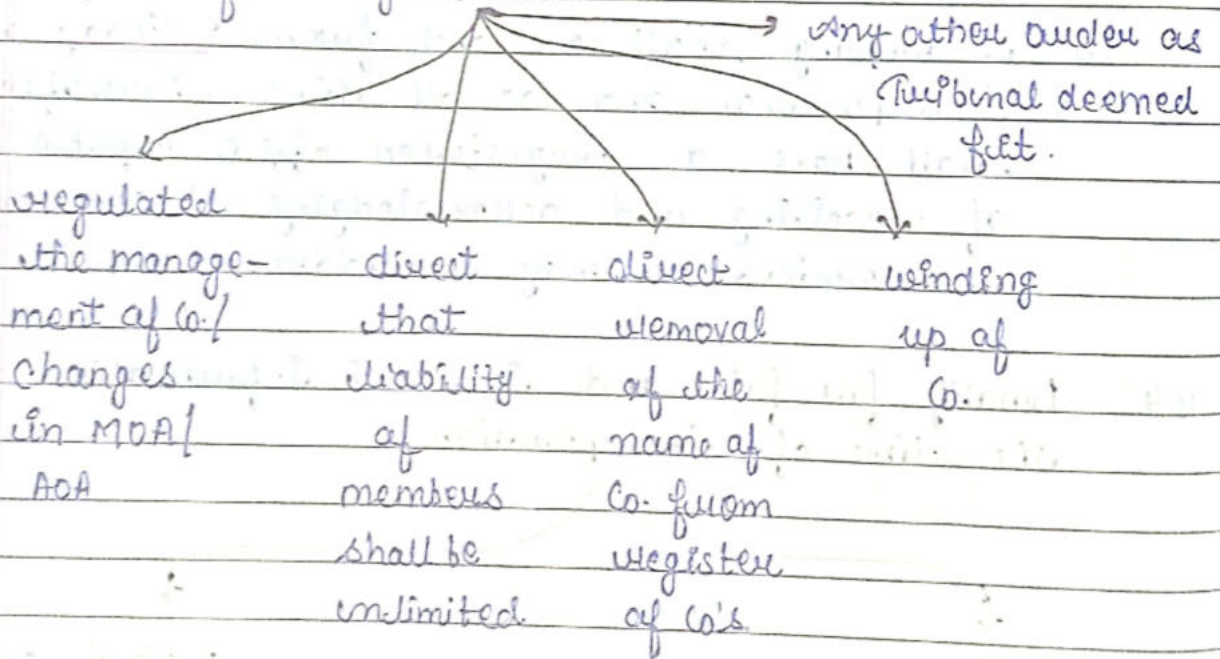 Any other order as
Tribunal deemed
fit.
regulated
the manage-
ment of Co./
changes
in MOA/
AOA
direct
that
liability
of
members
shall be
unlimited
direct
removal
of the
name of
Co. from
register
of Co's
winding
up of
Co.